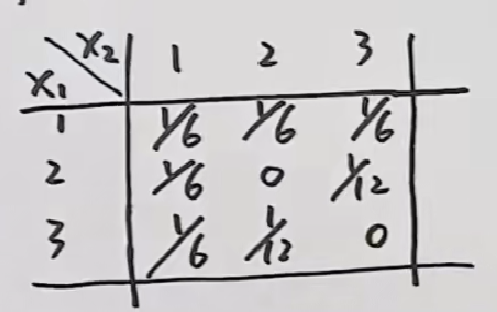 X₂ 1 2 3
X₁
1 1/6 1/6 1/6
2 1/6 0 1/12
3 1/6 1/12 0